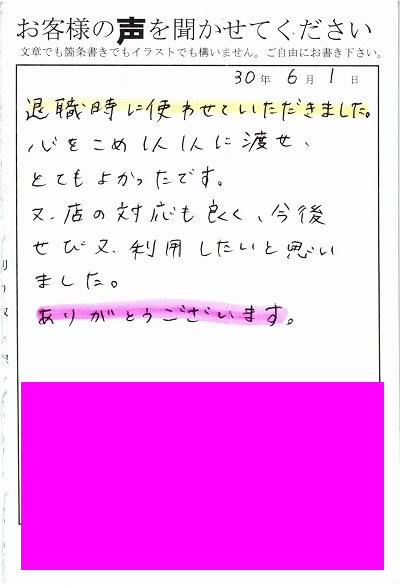 お客様の声を聞かせてください
文章でも箇条書きでもイラストでも構いません。ご自由にお書き下さい。
30年 6月 1日
退職時に使わせていただきました。
心をこめ1人1人に渡せ、
とてもよかったです。
又、店の対応も良く、今後
ぜひ又、利用したいと思い
ました。
ありがとうございます。